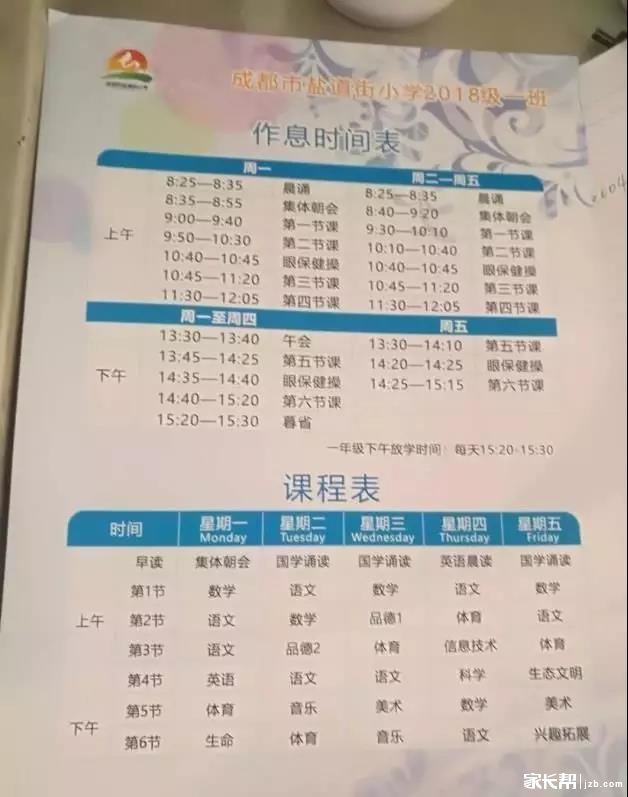 成都市盐道街小学2018级一班
作息时间表
周一 周二一周五
上午
8:25—8:35 晨诵 8:25—8:35 晨诵
8:35—8:55 集体朝会 8:40—9:20 集体朝会
9:00—9:40 第一节课 9:30—10:10 第一节课
9:50—10:30 第二节课 10:10—10:40 第二节课
10:40—10:45 眼保健操 10:40—10:45 眼保健操
10:45—11:20 第三节课 10:45—11:20 第三节课
11:30—12:05 第四节课 11:30—12:05 第四节课
周一至周四 周五
下午
13:30—13:40 午会 13:30—14:10 第五节课
13:45—14:25 第五节课 14:20—14:25 眼保健操
14:35—14:40 眼保健操 14:25—15:15 第六节课
14:40—15:20 第六节课
15:20—15:30 暮省
一年级下午放学时间：每天15:20-15:30
课程表
时间 星期一 星期二 星期三 星期四 星期五
Monday Tuesday Wednesday Thursday Friday
早读 集体朝会 国学诵读 国学诵读 英语晨读 国学诵读
上午
第1节 数学 语文 数学 语文 数学
第2节 语文 数学 品德1 体育 语文
第3节 语文 品德2 体育 信息技术 体育
第4节 英语 语文 语文 科学 生态文明
下午
第5节 体育 音乐 美术 数学 美术
第6节 生命 体育 音乐 语文 兴趣拓展
家长帮 jzb.com